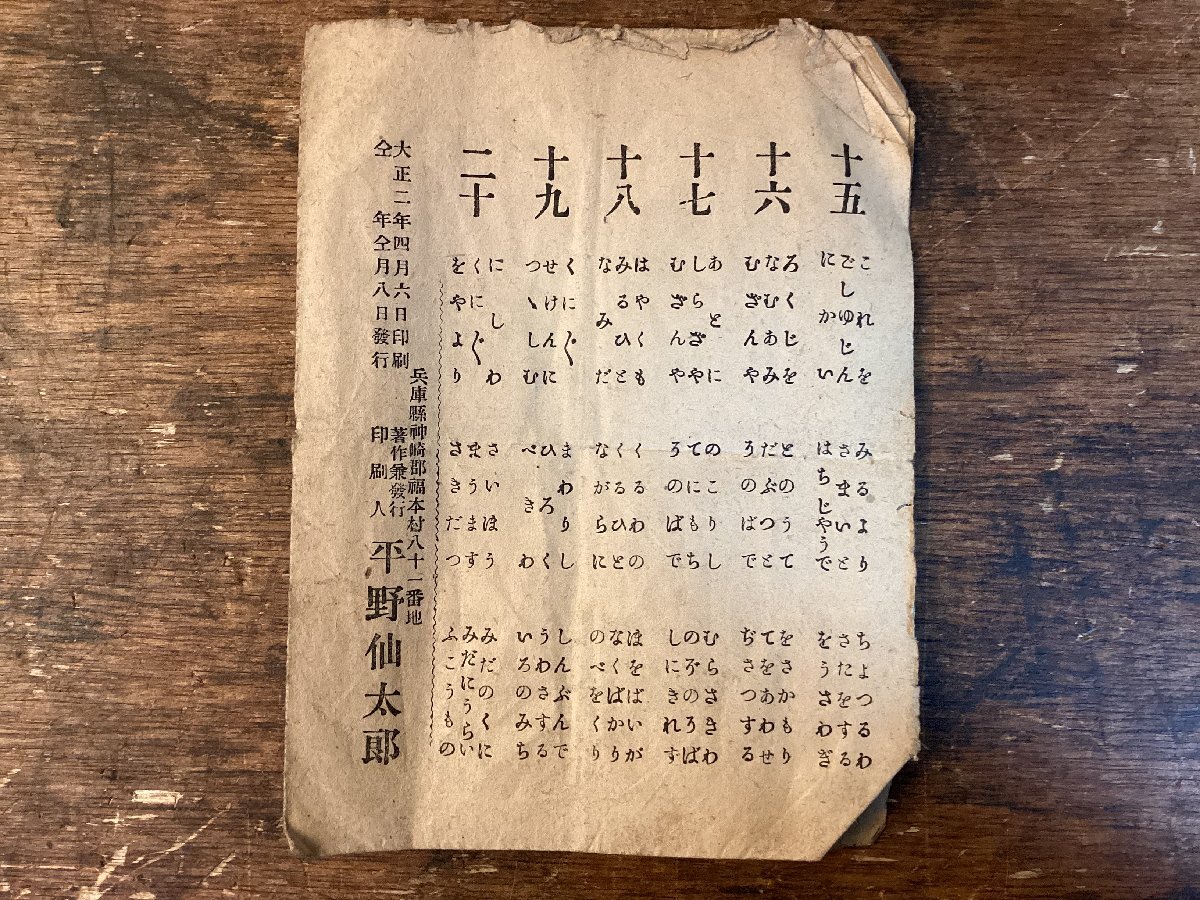 十五
これを みるより ちよつるわ
ごしゆじん さまいと さたをする
にかい はちじやうで をうさわぎ
十六
ろくじを とのうて をさかもり
なむあみ だぶつと てをあわせ
むざんや そのばで ぢさつする
十七
あとに のこりし むらさきわ
しらざや てにもち のどのそば
むざんや そのばで しにきれす
十八
はやくも くるわの ほをばいが
みるひと くるひと なくばかり
なみだ ながらに のべをくり
十九
くに〲 まわりし しんぶんで
せけんに ひろく うわさする
つゝしむ べきわ いろのみち
二十
にしわ さいほう みだのくに
くに〲 まうます みだにうらい
をやより さきだつ ふこうもの
大正二年四月六日印刷
仝年仝月八日發行
兵庫縣神崎郡福本村八十一番地
著作兼發行
印刷人 平野仙太郎